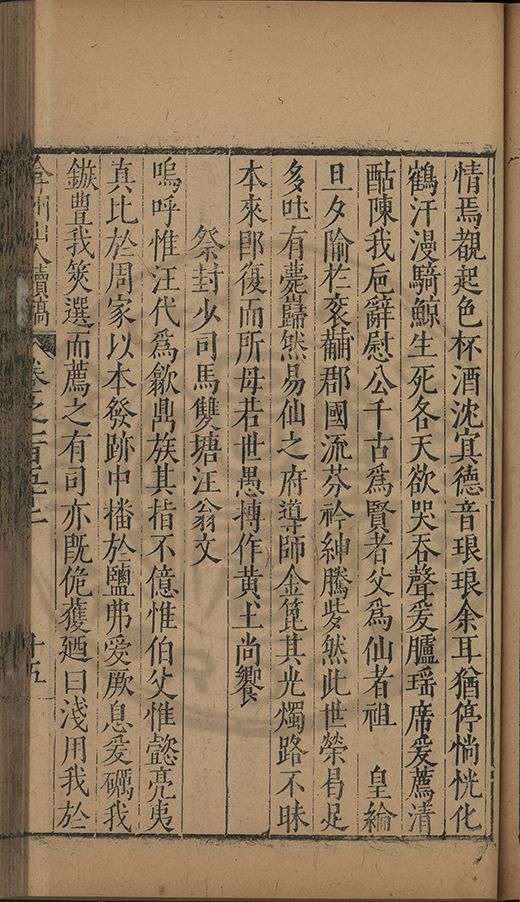 情焉覩起色杯酒沈冥德音琅琅余耳猶停惝恍化
鶴汗漫騎鯨生死各天欲哭吞聲爰臚瑶席爰薦清
酤陳我巵辭慰公千古爲賢者父爲仙者祖 皇綸
旦夕隃於衮黼郡國流芬衿紳騰訾然此世榮曷足
多吐有巋然易仙之府導師金篦其光燭路不昧
本來卽復而所母若世愚摶作黄土尚饗
祭封少司馬雙塘汪翁文
嗚呼惟汪代爲歙鼎族其指不億惟伯父惟懿亮夷
真比於周家以本發跡中播於鹽弗愛厥息爰礪我
鏃豐我筴選而薦之有司亦旣佹獲廼曰淺用我於
弇州山人續稿 卷之一百五十二 十五